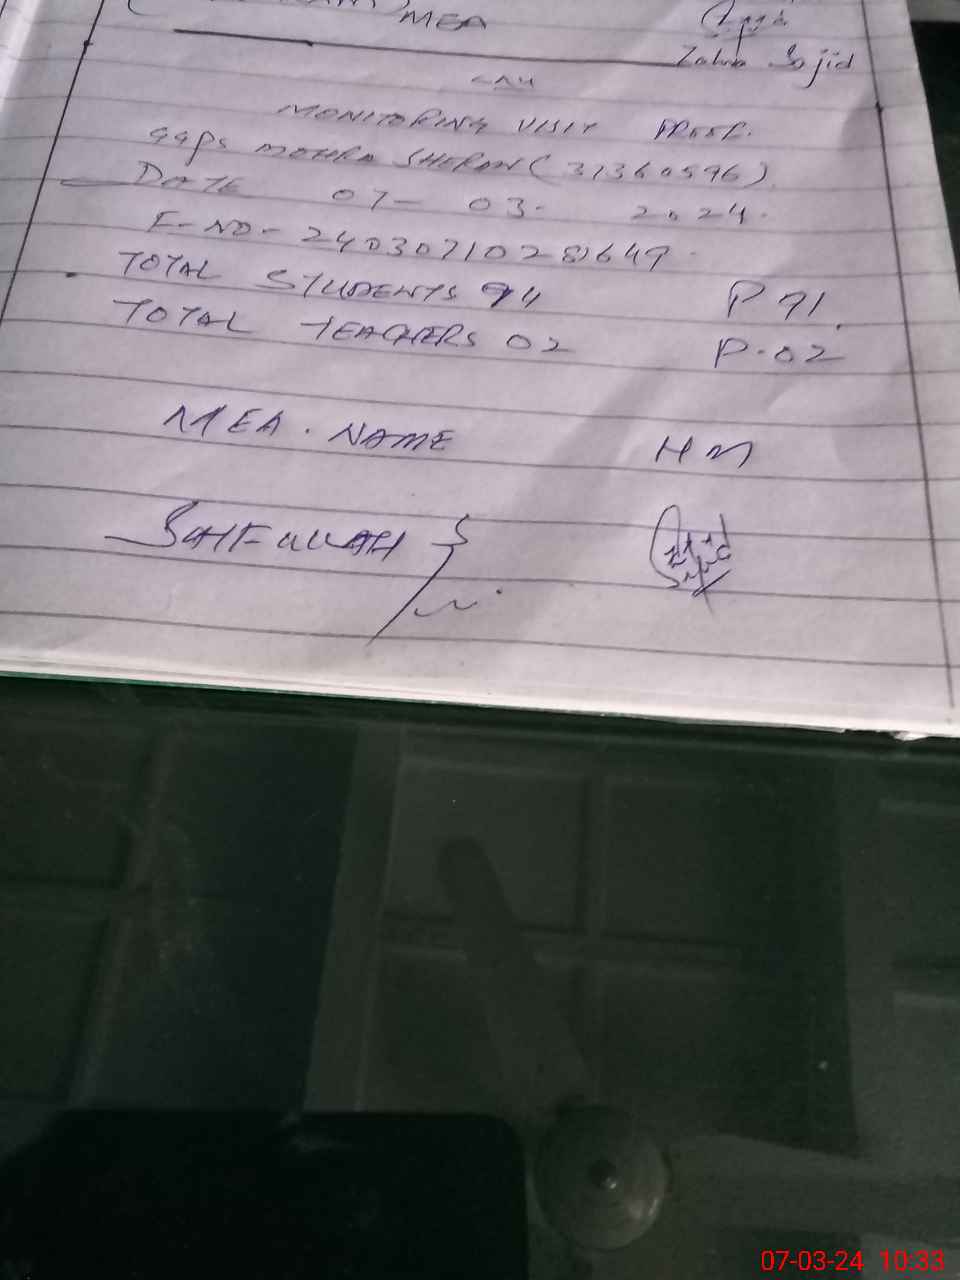 MEA
Zahra Sajid
MONITORING VISIT PROOF.
GGPS MOHRA SHERAN (37360596)
DATE 07- 03- 2024.
E-NO- 240307102
TOTAL STUDENTS 94 P 71.
TOTAL TEACHERS 02 P.02
MEA. NAME HM
07-03-24 10:33